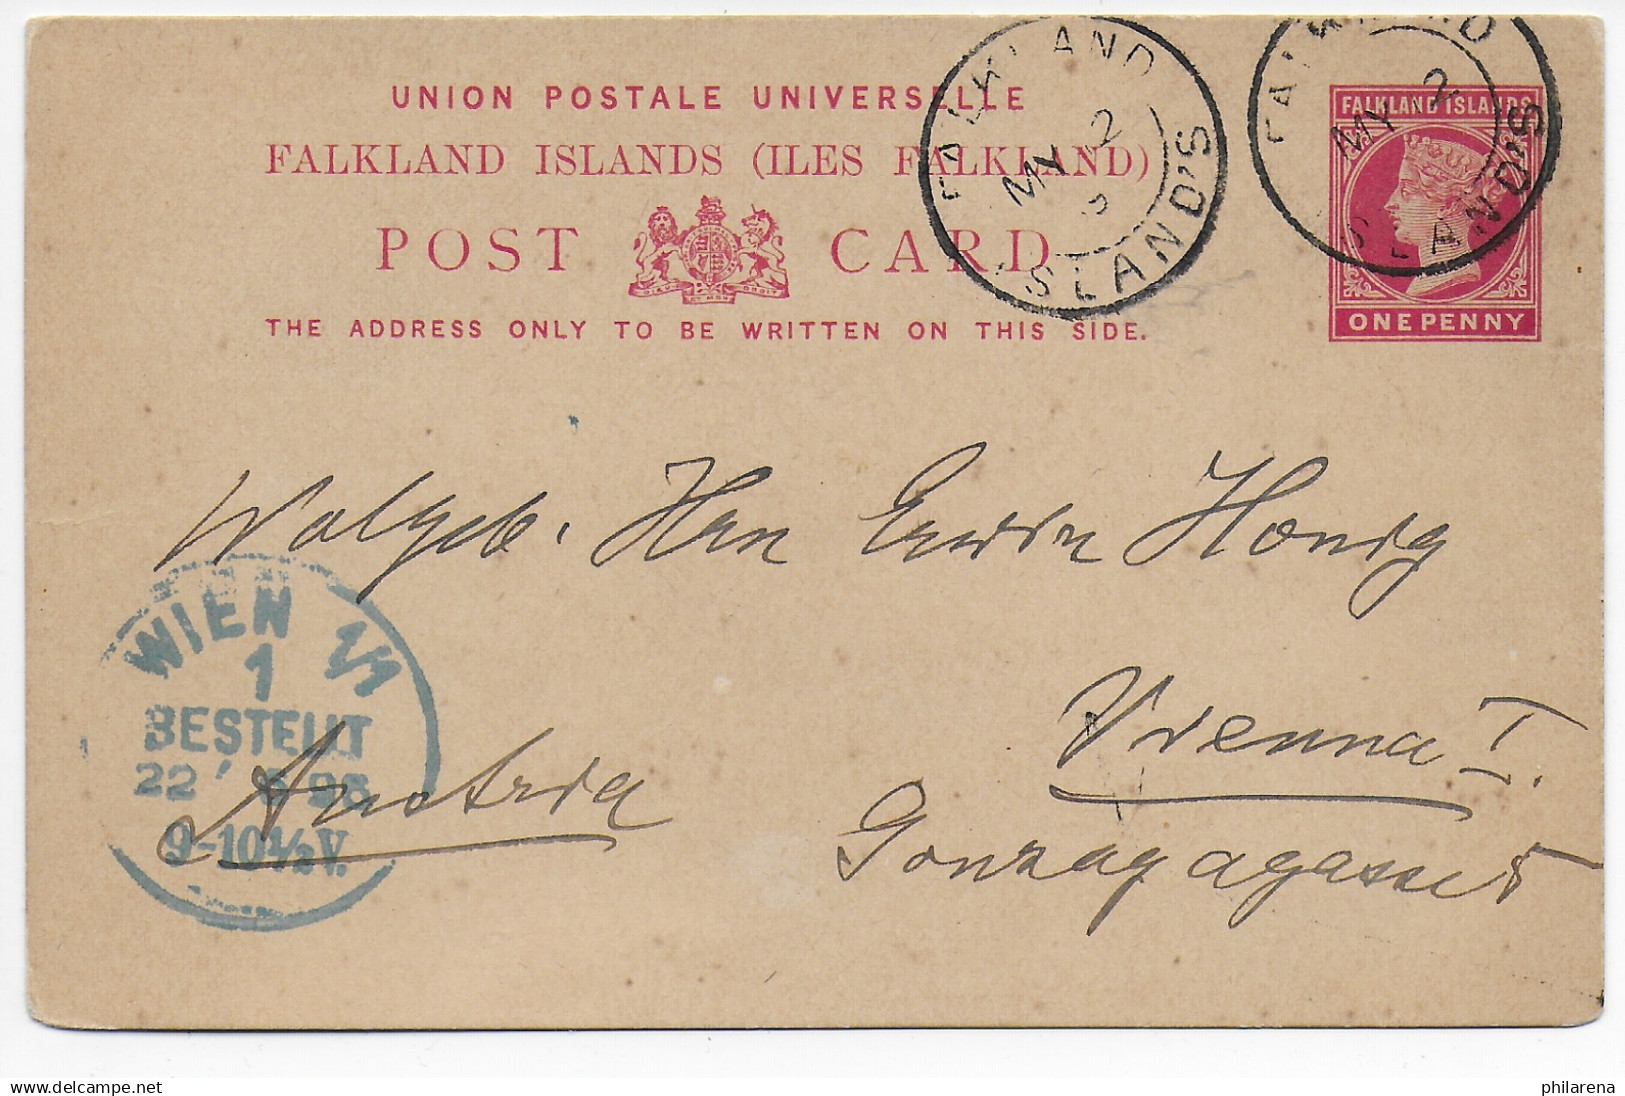 UNION POSTALE UNIVERSELLE
FALKLAND ISLANDS (ILES FALKLAND)
POST CARD
THE ADDRESS ONLY TO BE WRITTEN ON THIS SIDE.
FALKLAND ISLAND'S
MY 2
FALKLAND ISLAND'S
MY 2
FALKLAND ISLANDS
ONE PENNY
Wolgeb. Herrn Erwin Honig
Vienna I.
Austria
Gonzagagasse
WIEN 1/1
1
BESTELLT
22 98
9-10½V.
www.delcampe.net
philarena